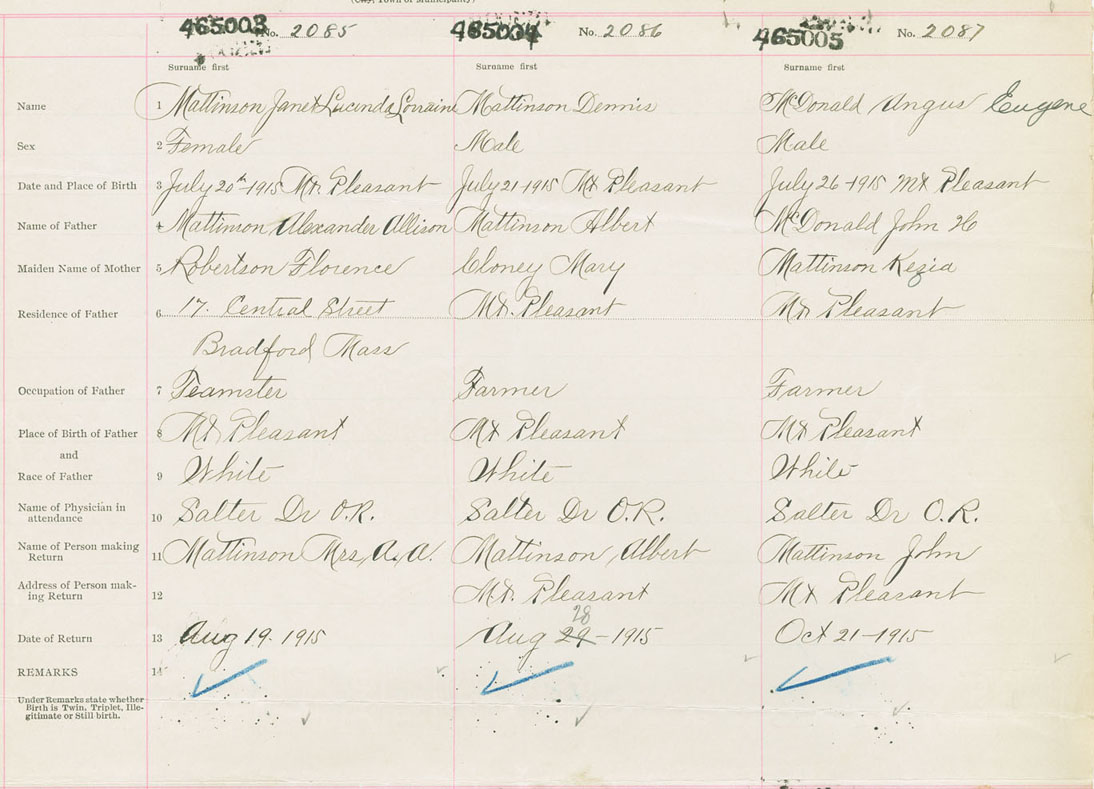 (City, Town or Municipality)
465003 No. 2085 465004 No. 2086 465005 No. 2087
Surname first Surname first Surname first
Name 1 Mattinson Janet Lucinda Lorraine Mattinson Dennis McDonald Angus Eugene
Sex 2 Female Male Male
Date and Place of Birth 3 July 20th-1915 Mt. Pleasant July 21-1915 Mt Pleasant July 26-1915 Mt Pleasant
Name of Father 4 Mattinson Alexander Allison Mattinson Albert McDonald John H
Maiden Name of Mother 5 Robertson Florence Cloney Mary Mattinson Kezia
Residence of Father 6 17. Central Street Mt. Pleasant Mt Pleasant
Bradford Mass
Occupation of Father 7 Teamster Farmer Farmer
Place of Birth of Father 8 Mt Pleasant Mt Pleasant Mt Pleasant
and
Race of Father 9 White White White
Name of Physician in
attendance 10 Salter Dr O.R. Salter Dr O.R. Salter Dr O.R.
Name of Person making
Return 11 Mattinson Mrs, A. A. Mattinson, Albert Mattinson John
Address of Person mak-
ing Return 12 Mt. Pleasant Mt Pleasant
28
Date of Return 13 Aug 19. 1915 Aug 29-1915 Oct 21-1915
REMARKS 14
Under Remarks state whether
Birth is Twin, Triplet, Ille-
gitimate or Still birth.